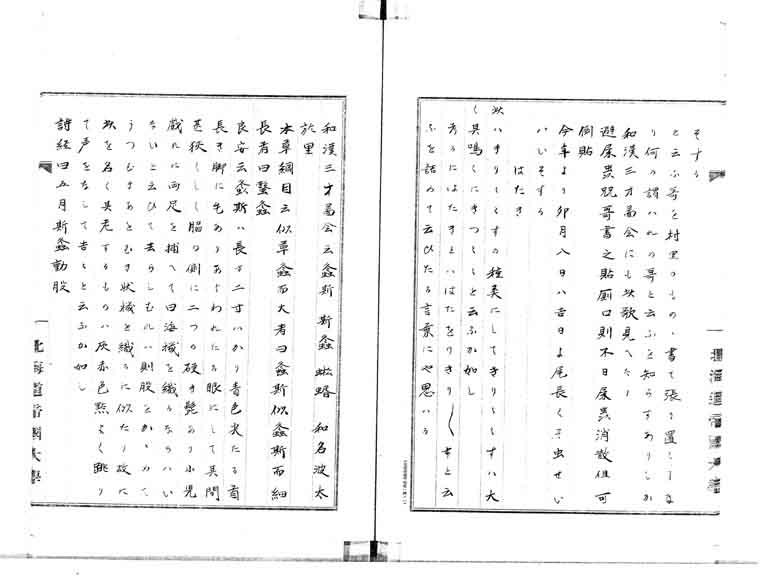 そする
と云ふ哥を村里のもの、書て張り置しな
り何の謂ハれの哥と云ふを知らすありしか
和漢三才圖会にも此歌見へたり
避尿虫呪哥書之貼厠口則不日尿虫消散但可
倒貼
今年より卯月八日ハ吉日よ尾長くそ虫せい
ハいそする
はたき
此ハきりきりすの種类にしてきりきりすハ大
く其鳴くにきつきつと云ふか如し
考るにはたきとハはたをりきりきりすと云
ふを詰めて云ひたる言葉にや思ハる
北海道帝國大學
和漢三才圖会云螽斯 斯螽 蜙蝑 和名波太
於里
本草綱目云似草螽而大者曰螽斯似螽斯而細
長者曰蟿螽
良安云螽斯ハ長さ二寸ハかり青色尖たる首
長き脚に毛ありあらわれたる眼にして其間
甚狭くして脳の側に二つの硬き髭あり小児
戯れに両足を捕へて曰海機を織るならハい
ないと云ひて去らしむれハ則股をかゝめて
うつむきあとむき状機を織るに似たり故に
此を名く其老するものハ灰赤色點よく跳り
て声をなして吉々と云ふか如し
詩経曰五月斯螽動股
北海道帝國大學